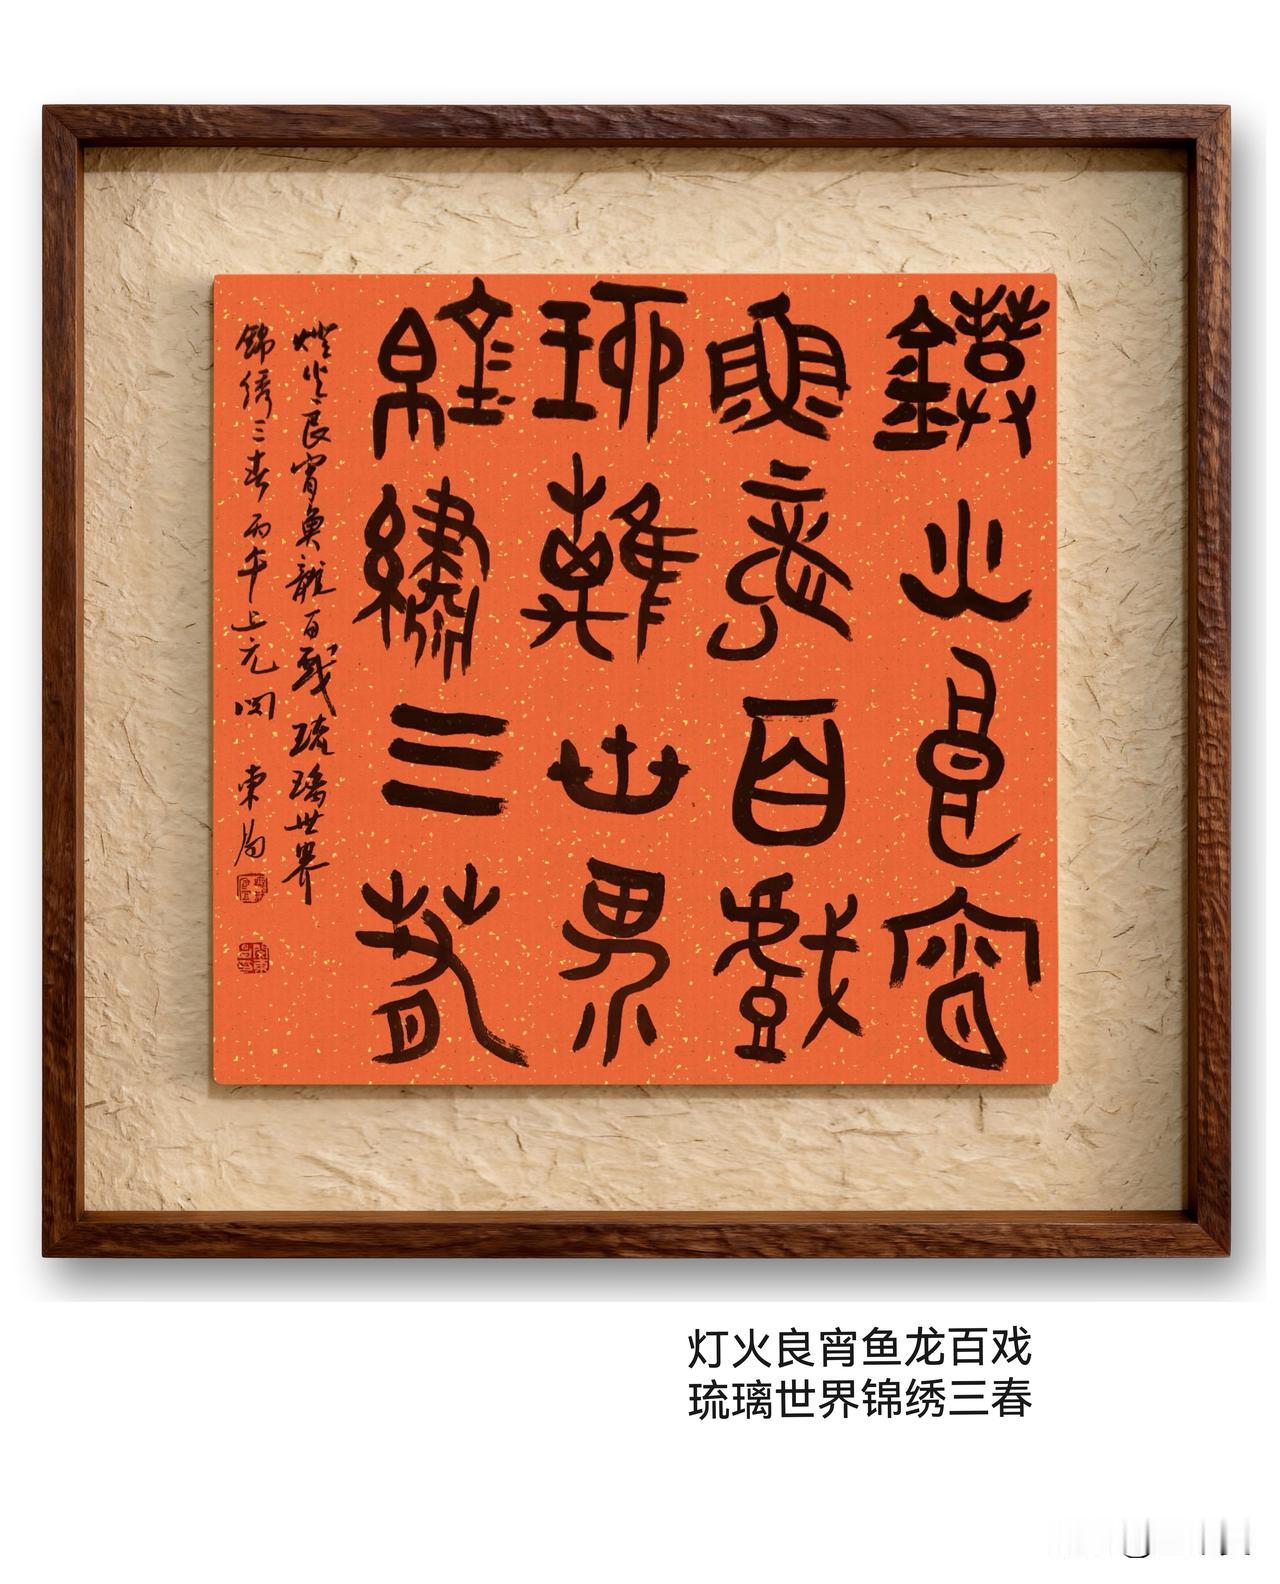 鐙火良宵
魚龍百戲
琉璃世界
錦繡三春
燈火良宵魚龍百戲琉璃世界
錦綉三春丙午上元関東
灯火良宵鱼龙百戏
琉璃世界锦绣三春